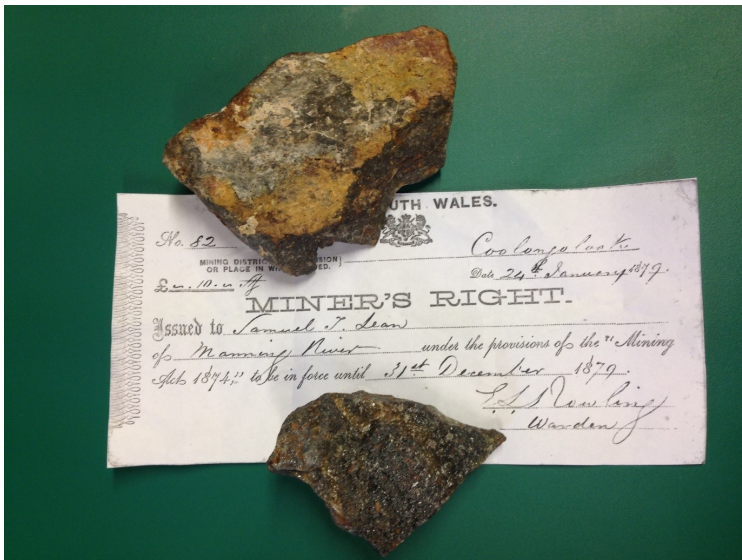 UTH WALES.
No. 82
Coolongolook
MINING DISTRIC SION
OR PLACE IN W DED.
Date 24th January 1879.
MINER'S RIGHT.
Issued to Samuel T. Dean
of Manning River under the provisions of the "Mining
Act 1874," to be in force until 31st December 1879.
Warden